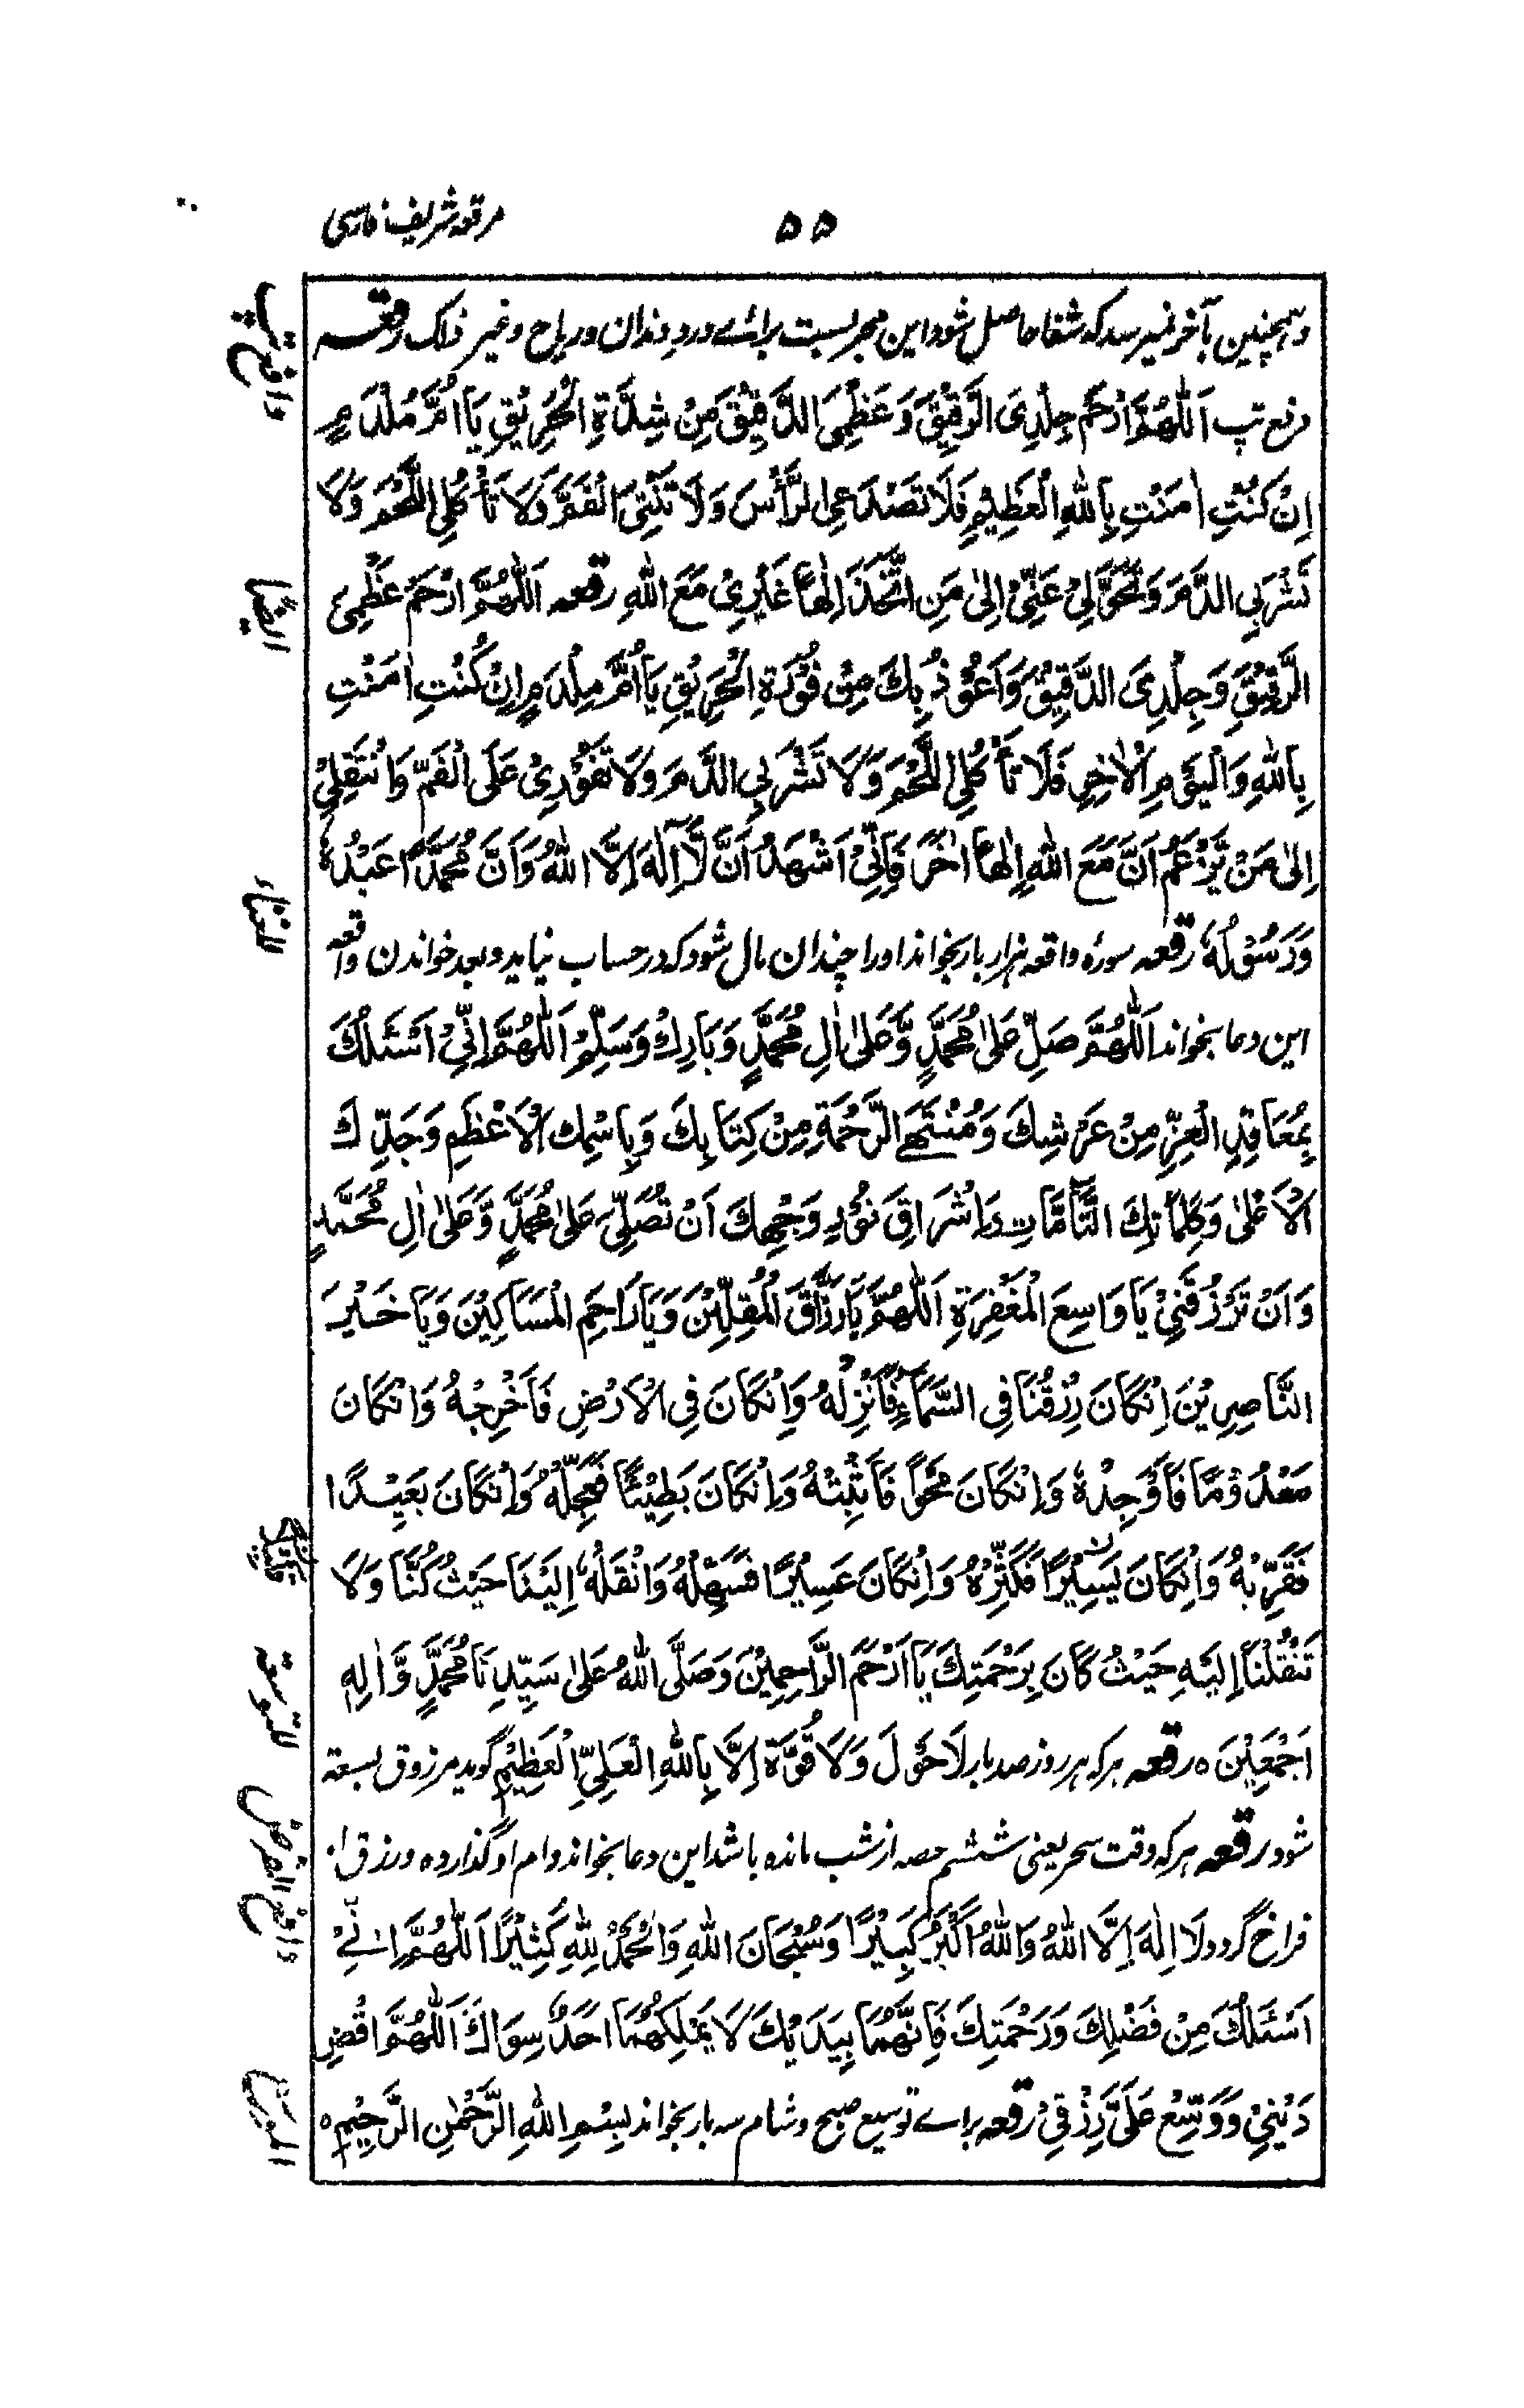 ۵۵
مرقعہ شریف فارسی
وہمچنین بآخر نمیرسد کہ شفا حاصل شود این مجربست برائے درد دندان و ریاح و غیر ذالک رقعہ
دفع تپ اَللّٰهُمَّ ارْحَمْ جِلْدِیَ الرَّقِیْقَ وَعَظْمِیَ الدَّقِیْقَ مِنْ شِدَّةِ الْحَرِیْقِ یَا اُمَّ مُلْدَمٍ
اِنْ كُنْتِ اٰمَنْتِ بِاللهِ الْعَظِیْمِ فَلَا تَصْدَعِی الرَّأْسَ وَلَا تُنْتِنِی الْفَمَّ وَلَا تَأْكُلِی اللَّحْمَ وَلَا
تَشْرَبِی الدَّمَ وَتَحَوَّلِیْ عَنِّیْ اِلٰی مَنِ اتَّخَذَ اِلٰهًا غَیْرِیْ مَعَ اللهِ رقعہ اَللّٰهُمَّ ارْحَمْ عَظْمِیَ
الرَّقِیْقَ وَجِلْدِیَ الدَّقِیْقَ وَاَعُوْذُ بِكَ مِنْ فَوْرَةِ الْحَرِیْقِ یَا اُمَّ مِلْدَمٍ اِنْ كُنْتِ اٰمَنْتِ
بِاللهِ وَالْیَوْمِ الْاٰخِرِ فَلَا تَأْكُلِی اللَّحْمَ وَلَا تَشْرَبِی الدَّمَ وَلَا تَفُوْرِیْ عَلَی الْفَمِّ وَانْتَقِلِیْ
اِلٰی مَنْ یَّزْعَمُ اَنَّ مَعَ اللهِ اِلٰهًا اٰخَرَ فَاِنِّیْ اَشْهَدُ اَنْ لَّا اِلٰهَ اِلَّا اللهُ وَاَنَّ مُحَمَّدًا عَبْدُهٗ
وَرَسُوْلُهٗ رقعہ سورۂ واقعہ ہزار بار بخواند او را چندان مال شود کہ در حساب نیاید و بعد خواندن واقعہ
این دعا بخواند اَللّٰهُمَّ صَلِّ عَلٰی مُحَمَّدٍ وَّعَلٰی اٰلِ مُحَمَّدٍ وَبَارِكْ وَسَلِّمْ اَللّٰهُمَّ اِنِّیْ اَسْئَلُكَ
بِمَعَاقِدِ الْعِزِّ مِنْ عَرْشِكَ وَمُنْتَهَی الرَّحْمَةِ مِنْ كِتَابِكَ وَبِاسْمِكَ الْاَعْظَمِ وَجَدِّكَ
الْاَعْلٰی وَكَلِمَاتِكَ التَّآمَّاتِ وَاِشْرَاقِ نُوْرِ وَجْهِكَ اَنْ تُصَلِّیَ عَلٰی مُحَمَّدٍ وَّعَلٰی اٰلِ مُحَمَّدٍ
وَاَنْ تَرْزُقَنِیْ یَا وَاسِعَ الْمَغْفِرَةِ اَللّٰهُمَّ یَا رَزَّاقَ الْمُقِلِّیْنَ وَیَا رَاحِمَ الْمَسَاكِیْنَ وَیَا خَیْرَ
النَّاصِرِیْنَ اِنْكَانَ رِزْقُنَا فِی السَّمَآءِ فَاَنْزِلْهُ وَاِنْكَانَ فِی الْاَرْضِ فَاَخْرِجْهُ وَاِنْكَانَ
مَعْدُوْمًا فَاَوْجِدْهُ وَاِنْكَانَ مَحْوًا فَاَثْبِتْهُ وَاِنْكَانَ بَطِیْئًا فَعَجِّلْهُ وَاِنْكَانَ بَعِیْدًا
فَقَرِّبْهُ وَاِنْكَانَ یَسِیْرًا فَكَثِّرْهُ وَاِنْكَانَ عَسِیْرًا فَسَهِّلْهُ وَانْقُلْهُ اِلَیْنَا حَیْثُ كُنَّا وَلَا
تَنْقُلْنَا اِلَیْهِ حَیْثُ كَانَ بِرَحْمَتِكَ یَا اَرْحَمَ الرَّاحِمِیْنَ وَصَلَّی اللهُ عَلٰی سَیِّدِنَا مُحَمَّدٍ وَّاٰلِهٖ
اَجْمَعِیْنَ ہ رقعہ ہر کہ ہر روز صد بار لَا حَوْلَ وَلَا قُوَّةَ اِلَّا بِاللهِ الْعَلِیِّ الْعَظِیْمِ گوید مرزوق بسعۃ
شود رقعہ ہر کہ وقت سحر یعنی ششم حصہ از شب ماندہ باشد این دعا بخواند وام او گذاردہ و رزق او
فراخ گردد لَا اِلٰهَ اِلَّا اللهُ وَاللهُ اَكْبَرُ كَبِیْرًا وَسُبْحَانَ اللهِ وَالْحَمْدُ لِلّٰهِ كَثِیْرًا اَللّٰهُمَّ اِنِّیْ
اَسْئَلُكَ مِنْ فَضْلِكَ وَرَحْمَتِكَ فَاِنَّهُمَا بِیَدَیْكَ لَا یَمْلِكُهُمَا اَحَدٌ سِوَاكَ اَللّٰهُمَّ اقْضِ
دَیْنِیْ وَوَسِّعْ عَلَیَّ رِزْقِیْ رقعہ براے توسیع صبح و شام سہ بار بخواند بِسْمِ اللهِ الرَّحْمٰنِ الرَّحِیْمِ ہ
دافع تپ
ایضًا
للغناء
للتوسعۃ
دافع القرض